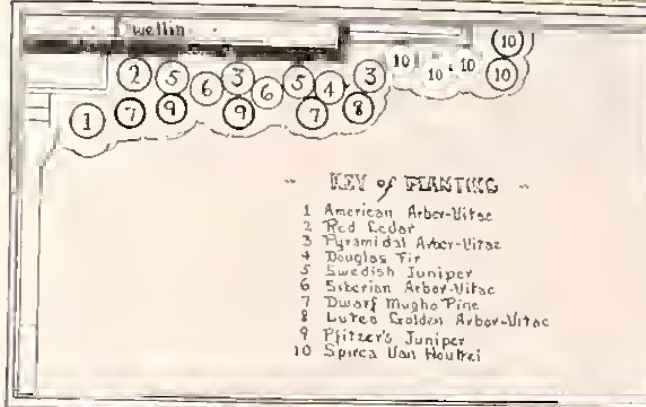 Dwellin
10
2 5 3 5 3 10 10 10
6 6 4 10
1 7 9 9 7 8
KEY of PLANTING
1 American Arbor-Vitae
2 Red Cedar
3 Pyramidal Arbor-Vitae
4 Douglas Fir
5 Swedish Juniper
6 Siberian Arbor-Vitae
7 Dwarf Mugho Pine
8 Lutea Golden Arbor-Vitae
9 Pfitzer's Juniper
10 Spirea Van Houttei